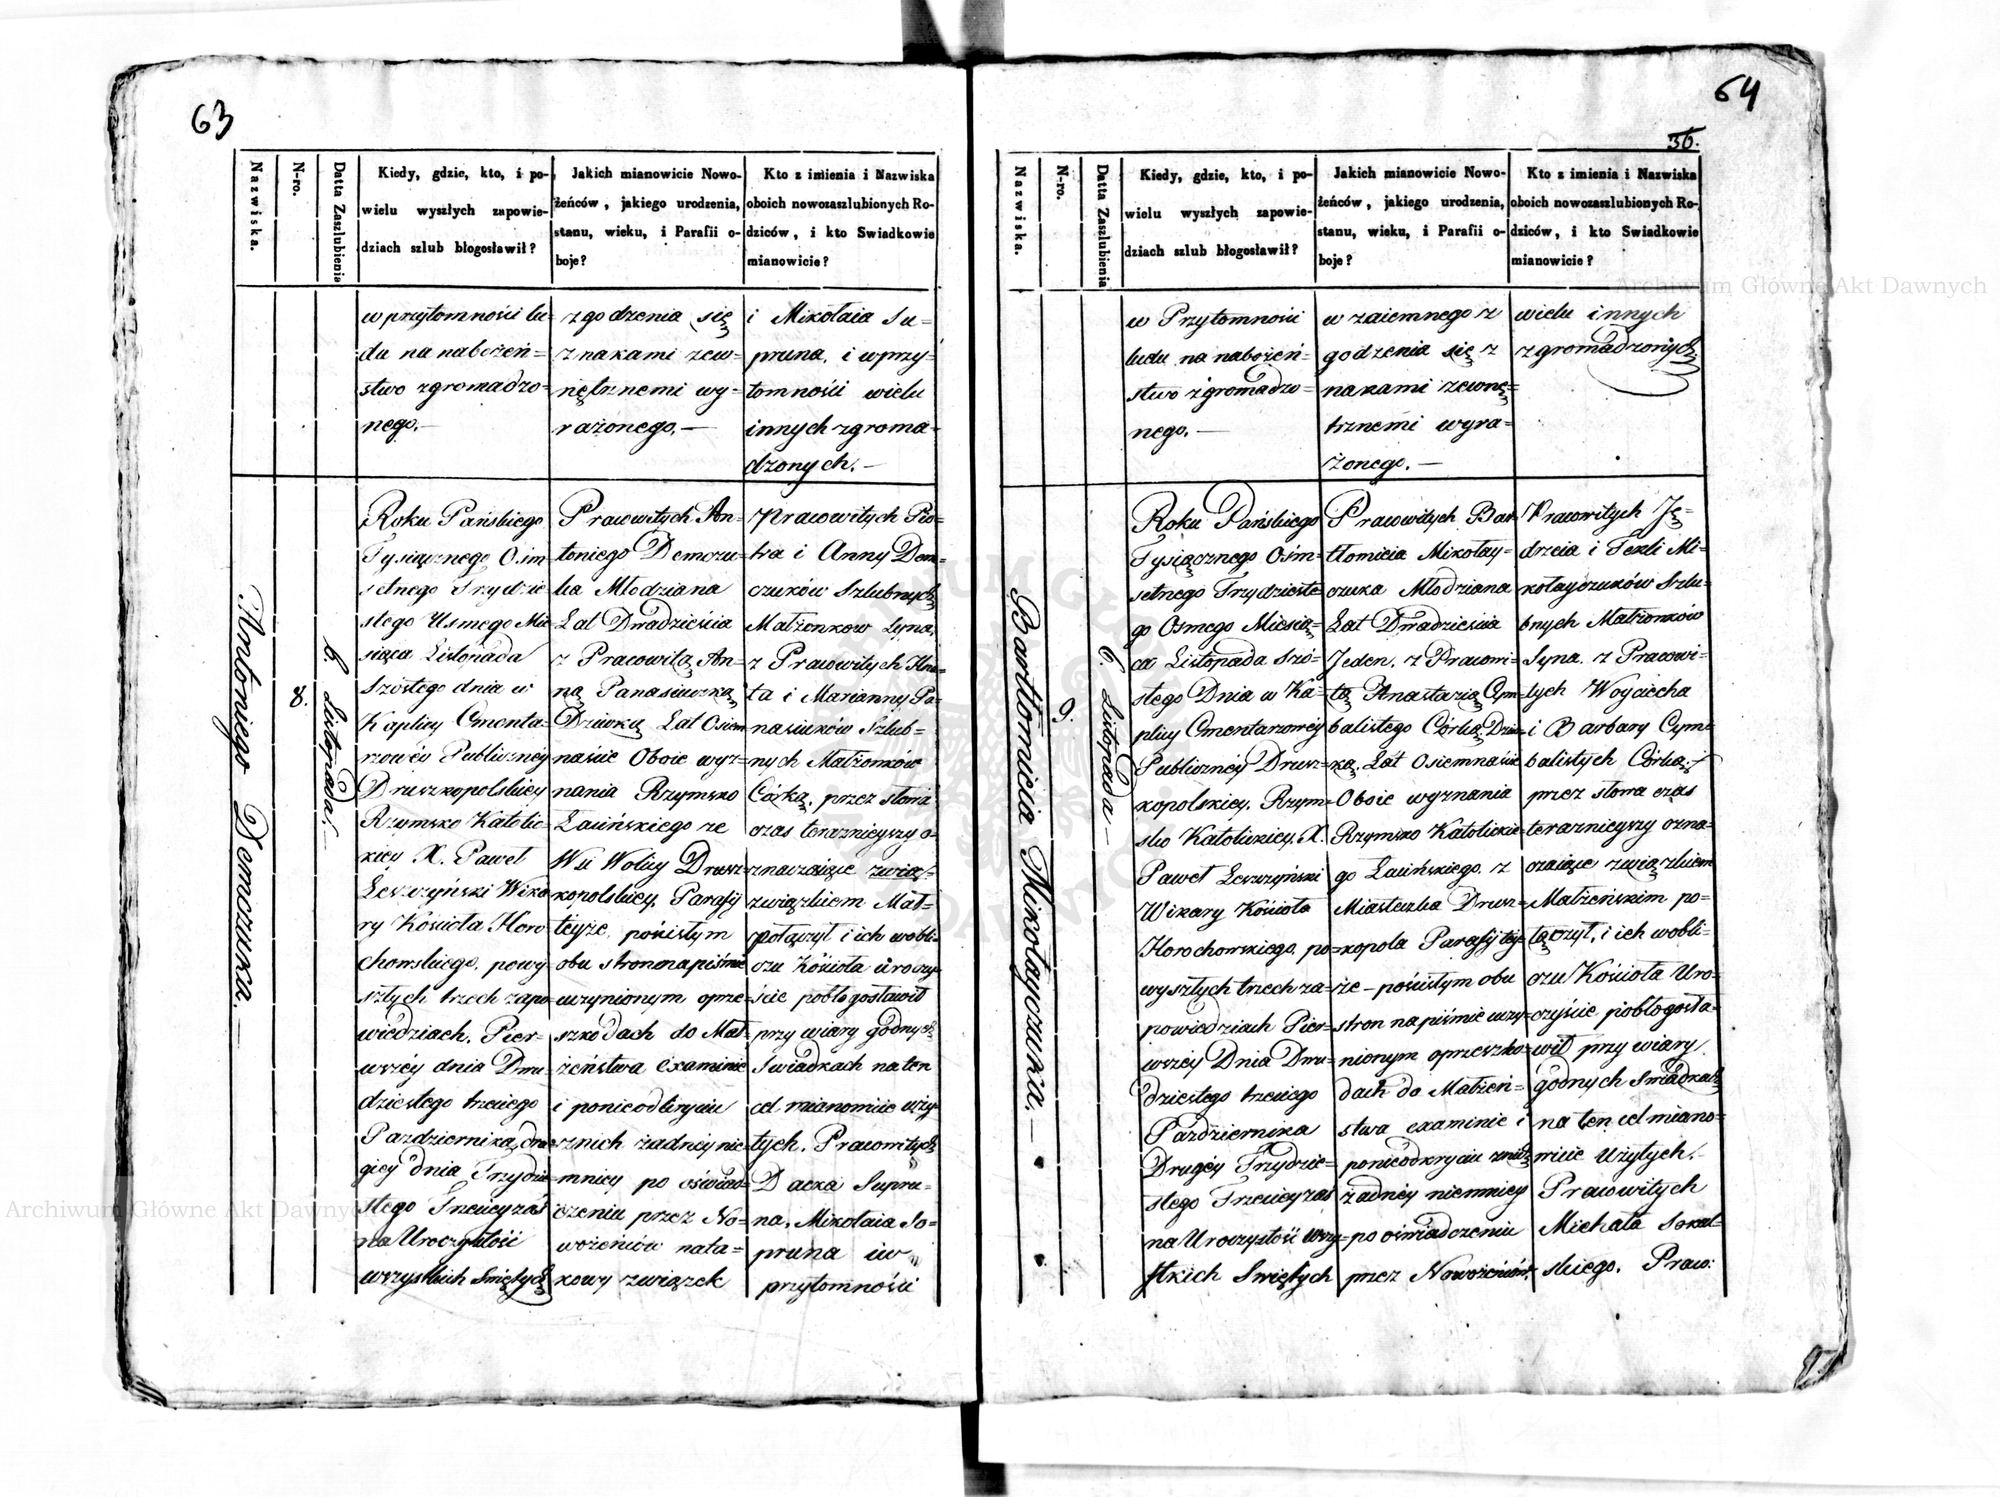 63
Nazwiska.
N-ro.
Datta Zaszlubienia
Kiedy, gdzie, kto, i po-
wielu wyszłych zapowie-
dziach szlub błogosławił?
Jakich mianowicie Nowo-
żeńców, jakiego urodzenia,
stanu, wieku, i Parafii o-
boje?
Kto z imienia i Nazwiska
oboich nowozaszlubionych Ro-
dziców, i kto Swiadkowie
mianowicie?
w przytomności lu=
du na nabożeń=
stwo zgromadzo=
nego.—
zgodzenia się
znakami zew=
nętrznemi wy=
rażonego.—
i Mikołaia Su=
pruna, i w przy=
tomności wielu
innych zgroma=
dzonych.—
Antoniego Demczuka.—
8.
6. Listopada.—
Roku Pańskiego
Tysiącznego Ośm
setnego Trzydzie
stego Usmego Mie
siąca Listopada
Szóstego dnia w
Kaplicy Cmenta=
rzowéy Publiczney
Druszkopolskiey
Rzymsko Katolic=
kiey X. Paweł
Leszczyński Wika
ry Kościoła Horo
chowskiego, powy
szłych trzech zapo
wiedziach. Pier=
wszéy dnia Dwu=
dziestego trzeciego
Pazdziernika, dru
giey dnia Trzydzie
stego Trzeciey zaś
na Uroczystość
wszystkich Swiętych
Pracowitych An=
toniego Demczu=
ka Młodziana
Lat Dwadzieścia
z Pracowitą An=
ną Panasiuwką
Dziewką Lat Osiem
naście Oboie wyz=
nania Rzymsko
Łacińskiego ze
Wsi Wolicy Drusz=
kopolskiey, Parafij
teyże, pościstym
obu stron na piśmie
uczynionym oprze=
szkodach do Mał=
żeństwa examinie
i ponieodkryciu
z nich żadnéy nie=
mnicy po oświad=
czeniu przez No=
wożeńców nata=
kowy związek
Pracowitych Pio=
tra i Anny Dem=
czuków Szlubnych
Małżonkow Syna,
z Pracowitych Igna
ta i Marianny Pa=
nasiuków Szlub=
nych Małżonków
Córką, przez słowa
czas terazniejszy o=
znaczaiące związ=
związkiem Mał=
połączył i ich wobli=
czu Kościoła uroczy=
ście pobłogosławił
przy wiary godnych
Swiadkach na ten
cel mianowicie uży=
tych. Pracowitych
Dacka Supru=
na, Mikołaia So=
pruna i w
przytomności
64
36.
Nazwiska.
N-ro.
Datta Zaszlubienia
Kiedy, gdzie, kto, i po-
wielu wyszłych zapowie-
dziach szlub błogosławił?
Jakich mianowicie Nowo-
żeńców, jakiego urodzenia,
stanu, wieku, i Parafii o-
boje?
Kto z imienia i Nazwiska
oboich nowozaszlubionych Ro-
dziców, i kto Swiadkowie
mianowicie?
w Przytomności
ludu na nabożeń=
stwo zgromadzo=
nego.—
w zaiemnego z
godzenia się z
nakami zewnę=
trznemi wyra=
żonego.—
wielu innych
zgromadzonych
Bartłomieia Mikołayczuka.—
9.
6. Listopada—
Roku Pańskiego
Tysiącznego Ośm=
setnego Trzydzieste
go Osmego Miesią=
ca Listopada Szó=
stego Dnia w Ka=
plicy Cmentarzowey
Publicznéy Drusz=
kopolskiey, Rzym=
sko Katolickiey, X.
Paweł Leszczyński
Wikary Kościoła
Horochowskiego, po=
wyszłych trzech za=
powiedziach Pier=
wszéy Dnia Dwu=
dziestego trzeciego
Pazdziernika
Drugéy Trzydzie=
stego Trzeciey zaś
na Uroczystość Wszy=
stkich Swiętych
Pracowitych Bar
tłomieia Mikołay=
czuka Młodziana
Lat Dwadzieścia
Jeden, z Pracowi=
tą Anastazią Cym=
balistego Córką, Dziew=
ką, Lat Osiemnaście
Oboie wyznania
Rzymsko Katolickie=
go Łacińskiego, z
Miasteczka Drusz=
kopola Parafij tey=
że – pościstym obu
stron na piśmie uczy=
nionym oprzeszko=
dach do Małżeń=
stwa examinie i
ponieodkryciu znich
żadnéy niemnicy
po oświadczeniu
przez Nowożeńców
Pracowitych Ję=
drzeia i Tekli Mi=
kołayczuków Szlu=
bnych Małżonków
Syna, z Pracowi=
tych Woyciecha
i Barbary Cym=
balistych Córką,
przez słowa czas
teraznieyszy ozna=
czaiące związkiem
Małżeńskim po=
łączył, i ich wobli=
czu Kościoła Uro=
czyście pobłogosła=
wił przy wiary
godnych Swiadkach
na ten cel miano=
wicie Użytych.—
Pracowitych
Michała Sokal=
skiego, Praco: